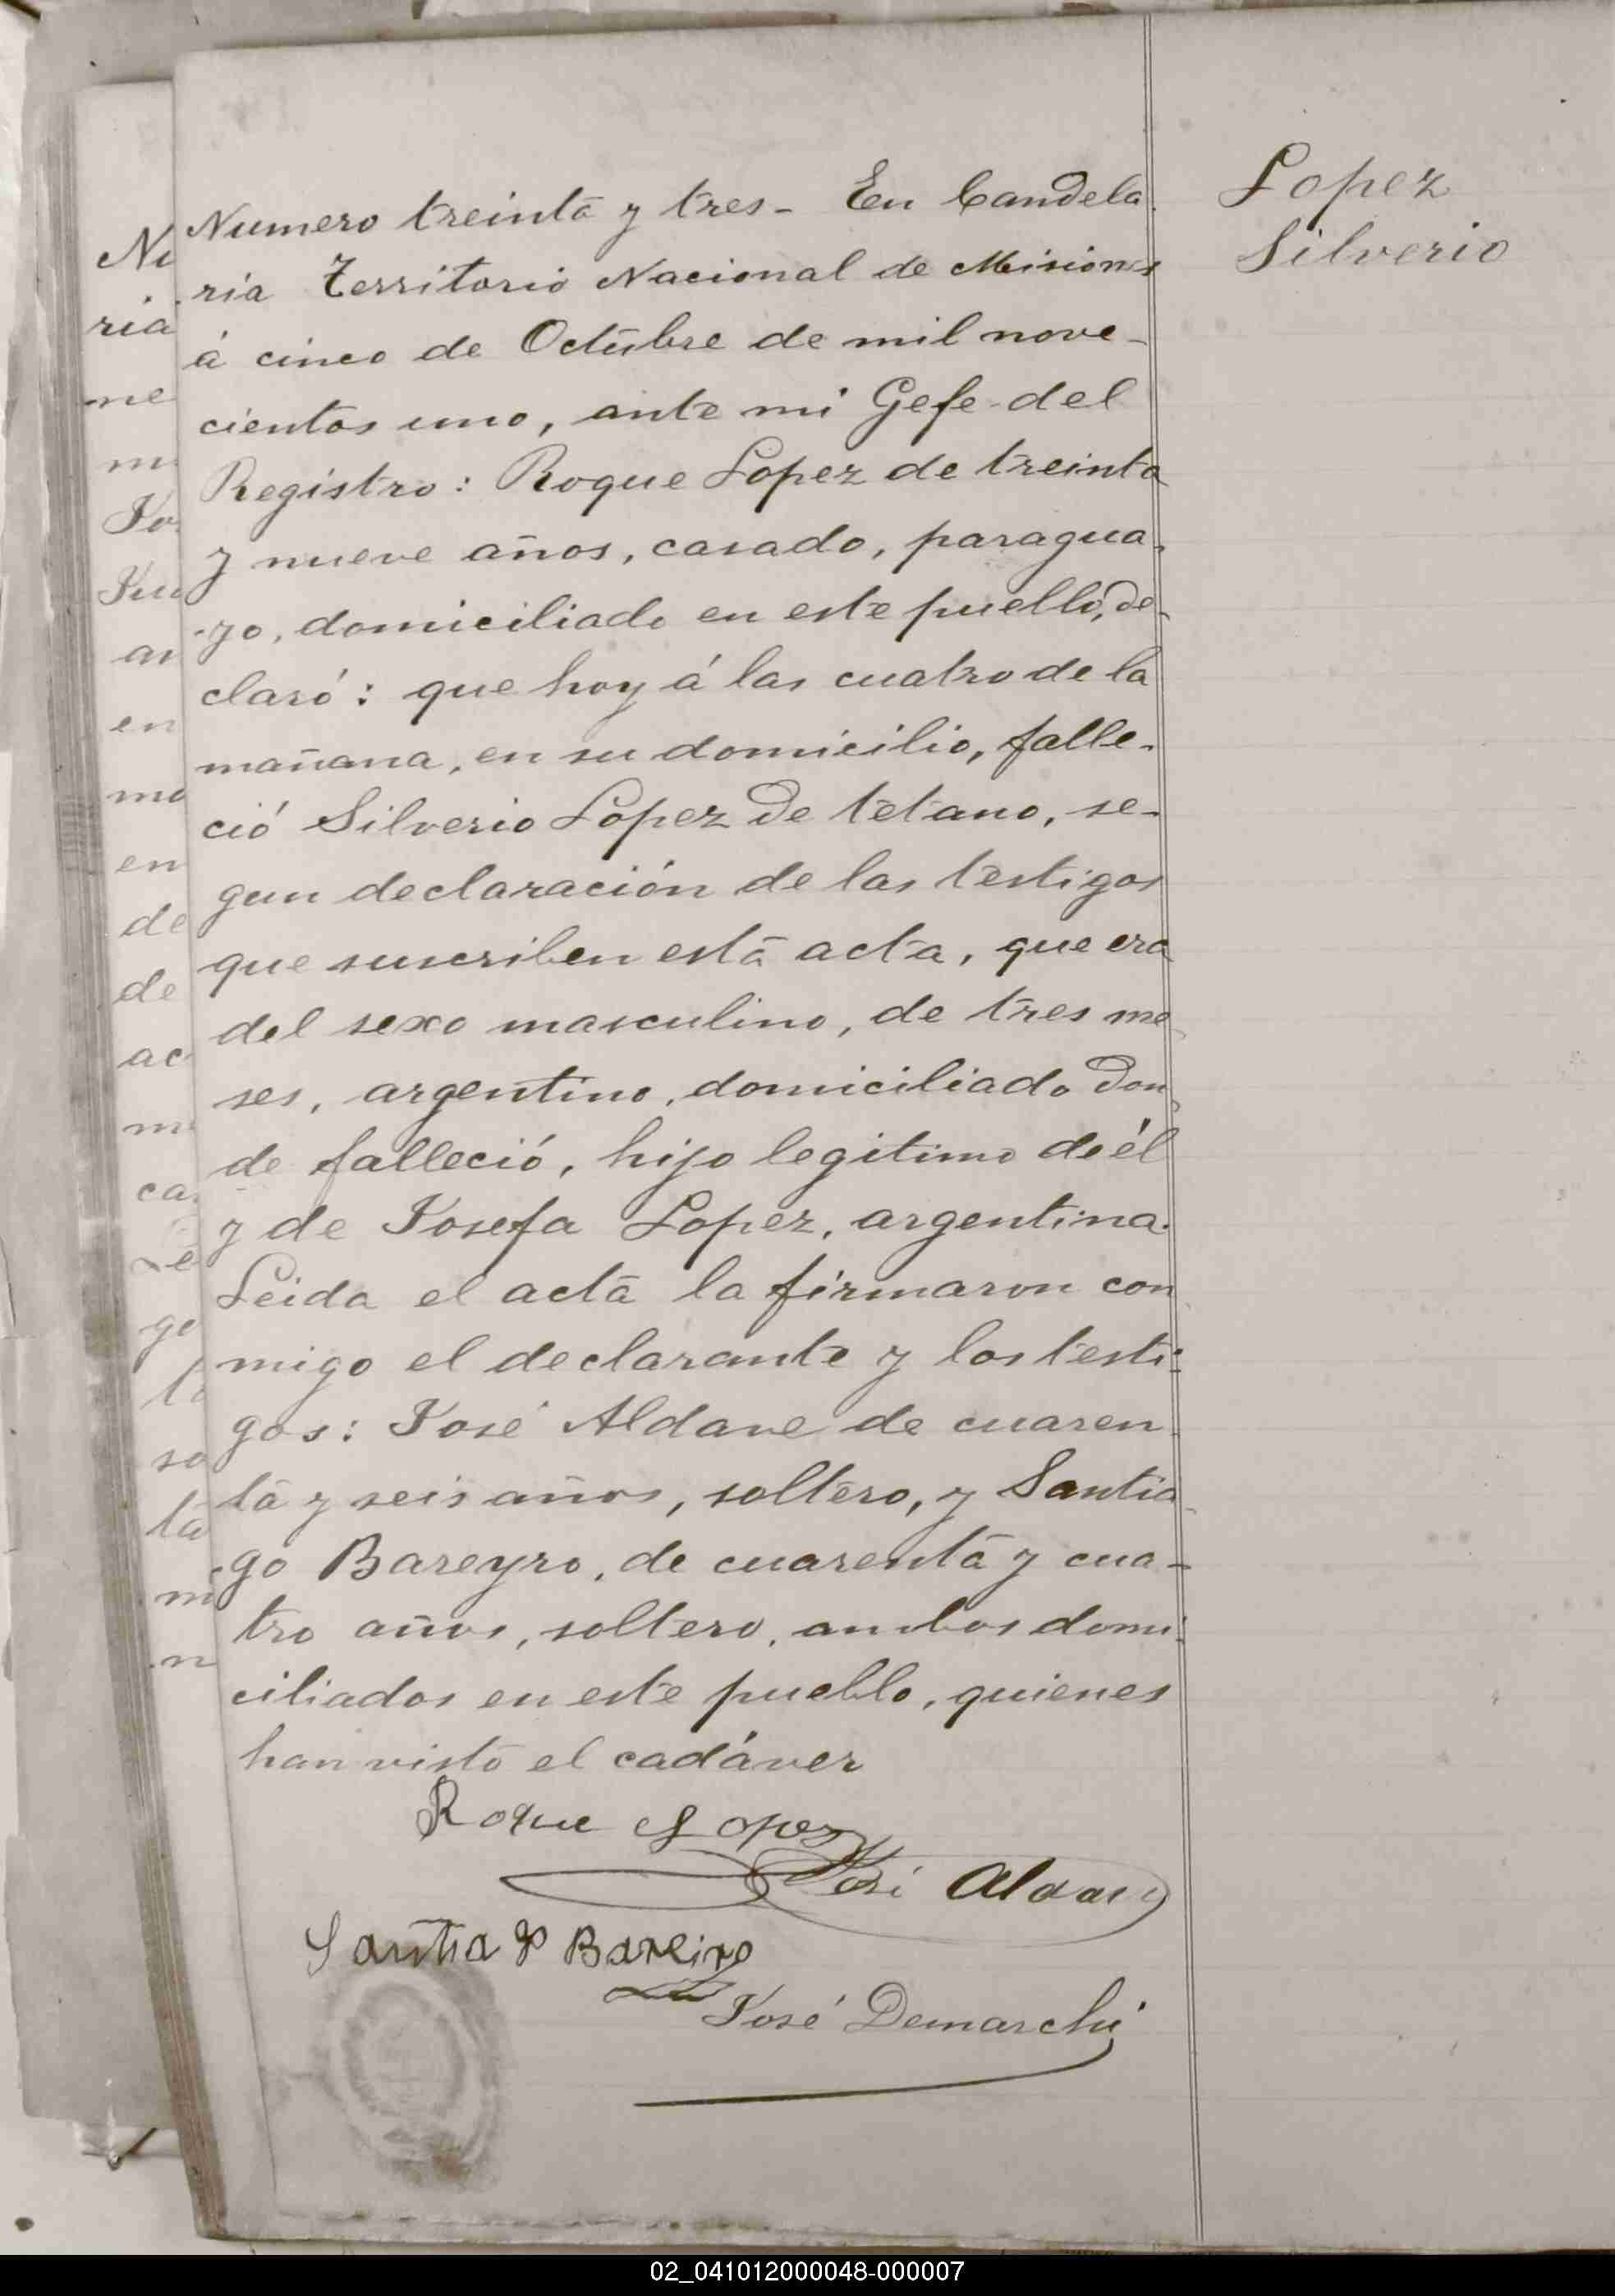 Numero treinta y tres - En Candela
ria Territorio Nacional de Misiones
á cinco de Octubre de mil nove-
cientos uno, ante mi Gefe del
Registro: Roque Lopez de treinta
y nueve años, casado, paragua-
yo, domiciliado en este pueblo, de-
claró: que hoy á las cuatro de la
mañana, en su domicilio, falle-
ció Silverio Lopez de tétano, se-
gun declaración de las testigos
que suscriben esta acta, que era
del sexo masculino, de tres me
ses, argentino, domiciliado don
de falleció, hijo legitimo de él
y de Josefa Lopez, argentina.
Leida el acta la firmaron con
migo el declarante y los testi-
gos: José Aldave de cuaren
ta y seis años, soltero, y Santia
go Bareyro, de cuarenta y cua-
tro años, soltero, ambos domi-
ciliados en este pueblo, quienes
han visto el cadáver
Roque Lopez
José
Santiago Bareiro
José Demarchi
Lopez
Silverio
Ni
ria
ne
m
Jo
Ju
an
en
ma
en
de
de
ac
m
ca
Le
go
to
so
ta
ni
n
02_041012000048-000007